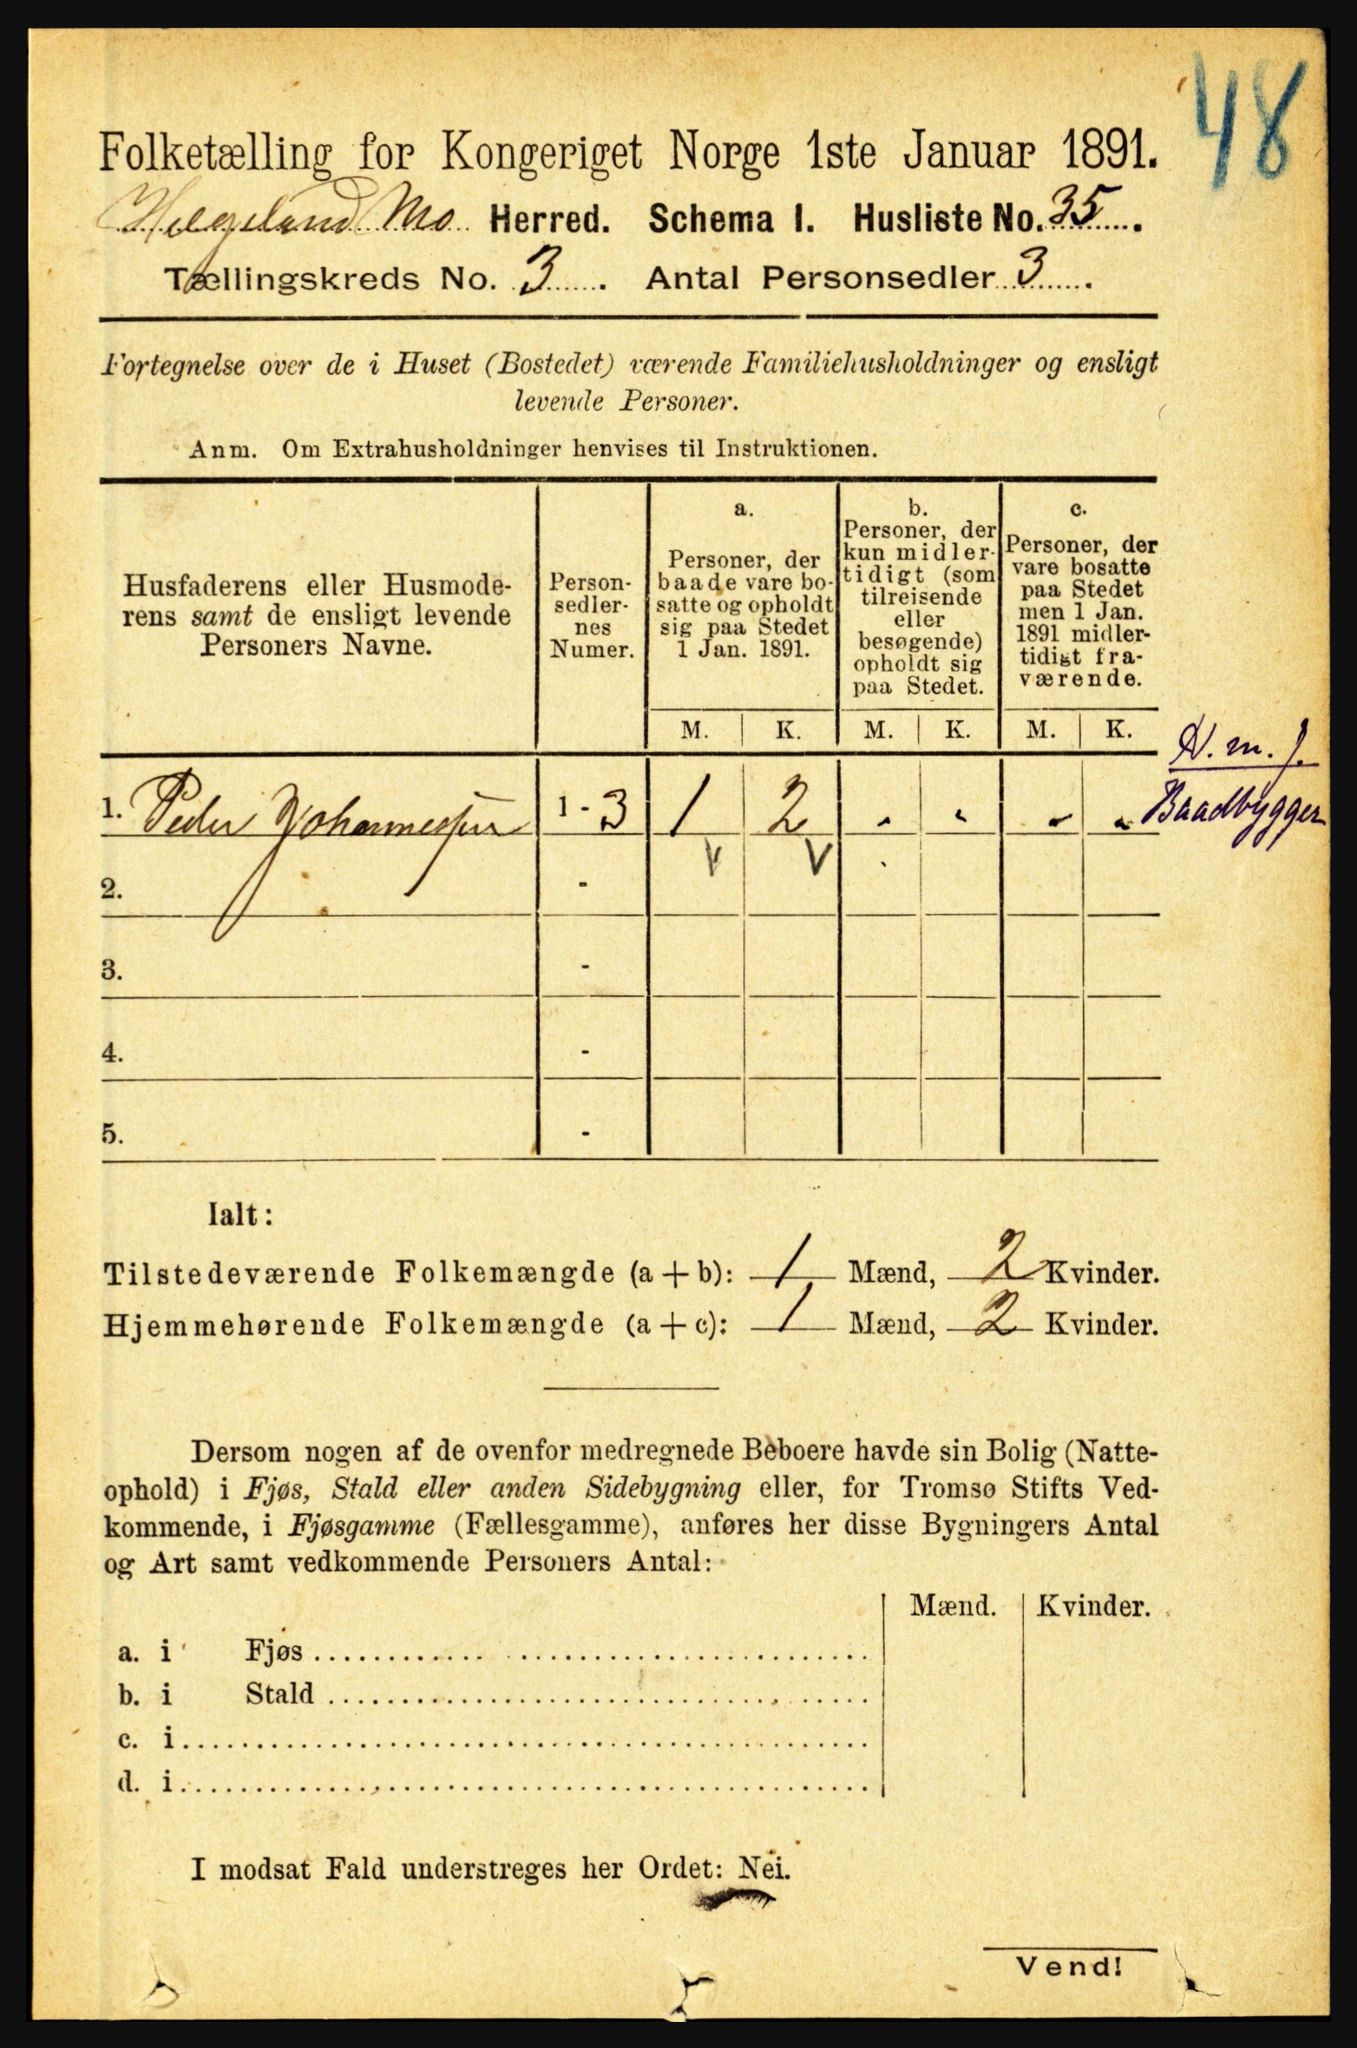 48
Folketælling for Kongeriget Norge 1ste Januar 1891.
Helgeland Mo Herred. Schema I. Husliste No. 35.
Tællingskreds No. 3. Antal Personsedler 3.
Fortegnelse over de i Huset (Bostedet) værende Familiehusholdninger og ensligt
levende Personer.
Anm. Om Extrahusholdninger henvises til Instruktionen.
Husfaderens eller Husmode-
rens samt de ensligt levende
Personers Navne.
Person-
sedler-
nes
Numer.
a.
Personer, der
baade vare bo-
satte og opholdt
sig paa Stedet
1 Jan. 1891.
b.
Personer, der
kun midler-
tidigt (som
tilreisende
eller
besøgende)
opholdt sig
paa Stedet.
c.
Personer, der
vare bosatte
paa Stedet
men 1 Jan.
1891 midler-
tidigt fra-
værende.
M. K. M. K. M. K.
H. m. f.
Baadbygger
1. Peder Johannessen 1 - 3 1 2 . . . .
v v
2. -
3. -
4. -
5. -
Ialt:
Tilstedeværende Folkemængde (a + b): 1 Mænd, 2 Kvinder.
Hjemmehørende Folkemængde (a + c): 1 Mænd, 2 Kvinder.
Dersom nogen af de ovenfor medregnede Beboere havde sin Bolig (Natte-
ophold) i Fjøs, Stald eller anden Sidebygning eller, for Tromsø Stifts Ved-
kommende, i Fjøsgamme (Fællesgamme), anføres her disse Bygningers Antal
og Art samt vedkommende Personers Antal:
Mænd. Kvinder.
a. i Fjøs
b. i Stald
c. i
d. i
I modsat Fald understreges her Ordet: Nei.
Vend!